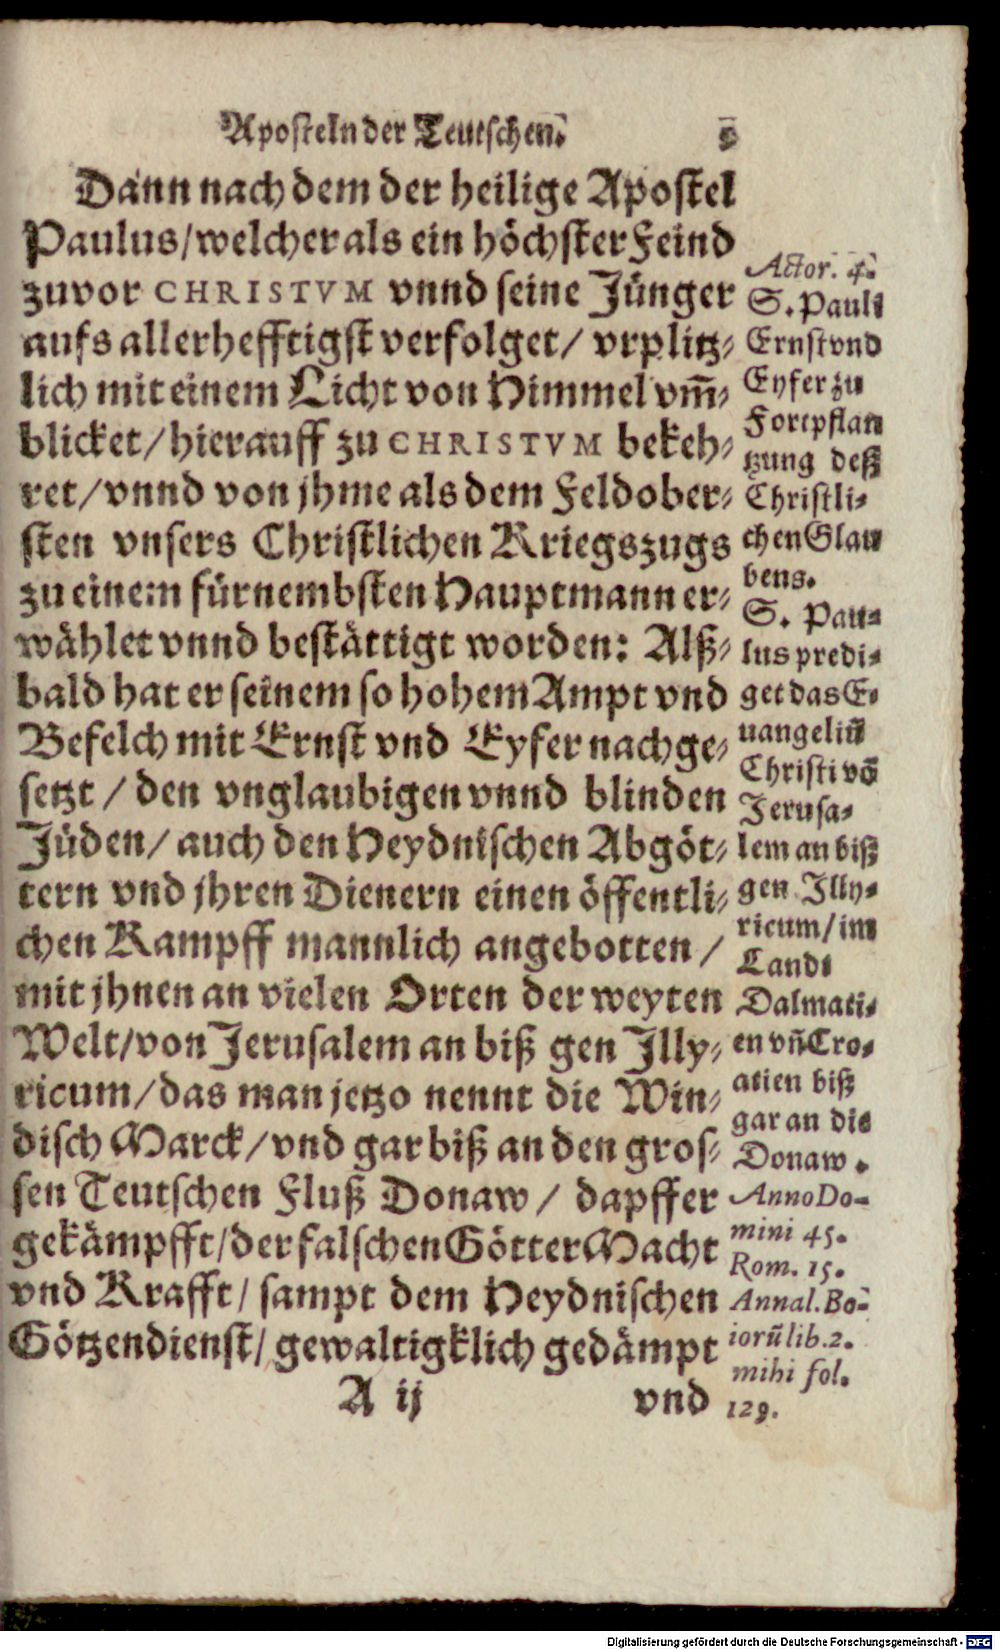 Aposteln der Teutschen.
Dann nach dem der heilige Apostel
Paulus/welcher als ein höchster Feind
zuvor CHRISTVM vnnd seine Jünger
aufs allerhefftigst verfolget/ vrplitz-
lich mit einem Licht von Himmel vm̃-
blicket/hierauff zu CHRISTVM bekeh-
ret/vnnd von jhme als dem Feldober-
sten vnsers Christlichen Kriegszugs
zu einem fürnembsten Hauptmann er-
wählet vnnd bestättigt worden: Alß-
bald hat er seinem so hohem Ampt vnd
Befelch mit Ernst vnd Eyfer nachge-
setzt / den vnglaubigen vnnd blinden
Jüden/ auch den Heydnischen Abgöt-
tern vnd jhren Dienern einen öffentli-
chen Kampff mannlich angebotten /
mit jhnen an vielen Orten der weyten
Welt/von Jerusalem an biß gen Illy-
ricum/das man jetzo nennt die Win-
disch Marck/vnd gar biß an den gros-
sen Teutschen Fluß Donaw / dapffer
gekämpfft/der falschen Götter Macht
vnd Krafft/ sampt dem Heydnischen
Götzendienst/ gewaltigklich gedämpt
A ij vnd
Actor. 4.
S. Pauli
Ernst vnd
Eyfer zu
Fortpflan
tzung deß
Christli-
chen Glau
bens.
S. Pau-
lus predi-
get das E-
uangeliū
Christi vō
Jerusa-
lem an biß
gen Illy-
ricum/im
Land
Dalmati-
en vñ Cro-
atien biß
gar an die
Donaw.
Anno Do-
mini 45.
Rom. 15.
Annal. Bo-
iorũ lib. 2.
mihi fol.
129.
Digitalisierung gefördert durch die Deutsche Forschungsgemeinschaft - DFG